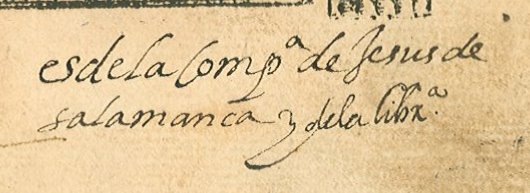 es de la Compª de Jesus de
salamanca y dela librª.